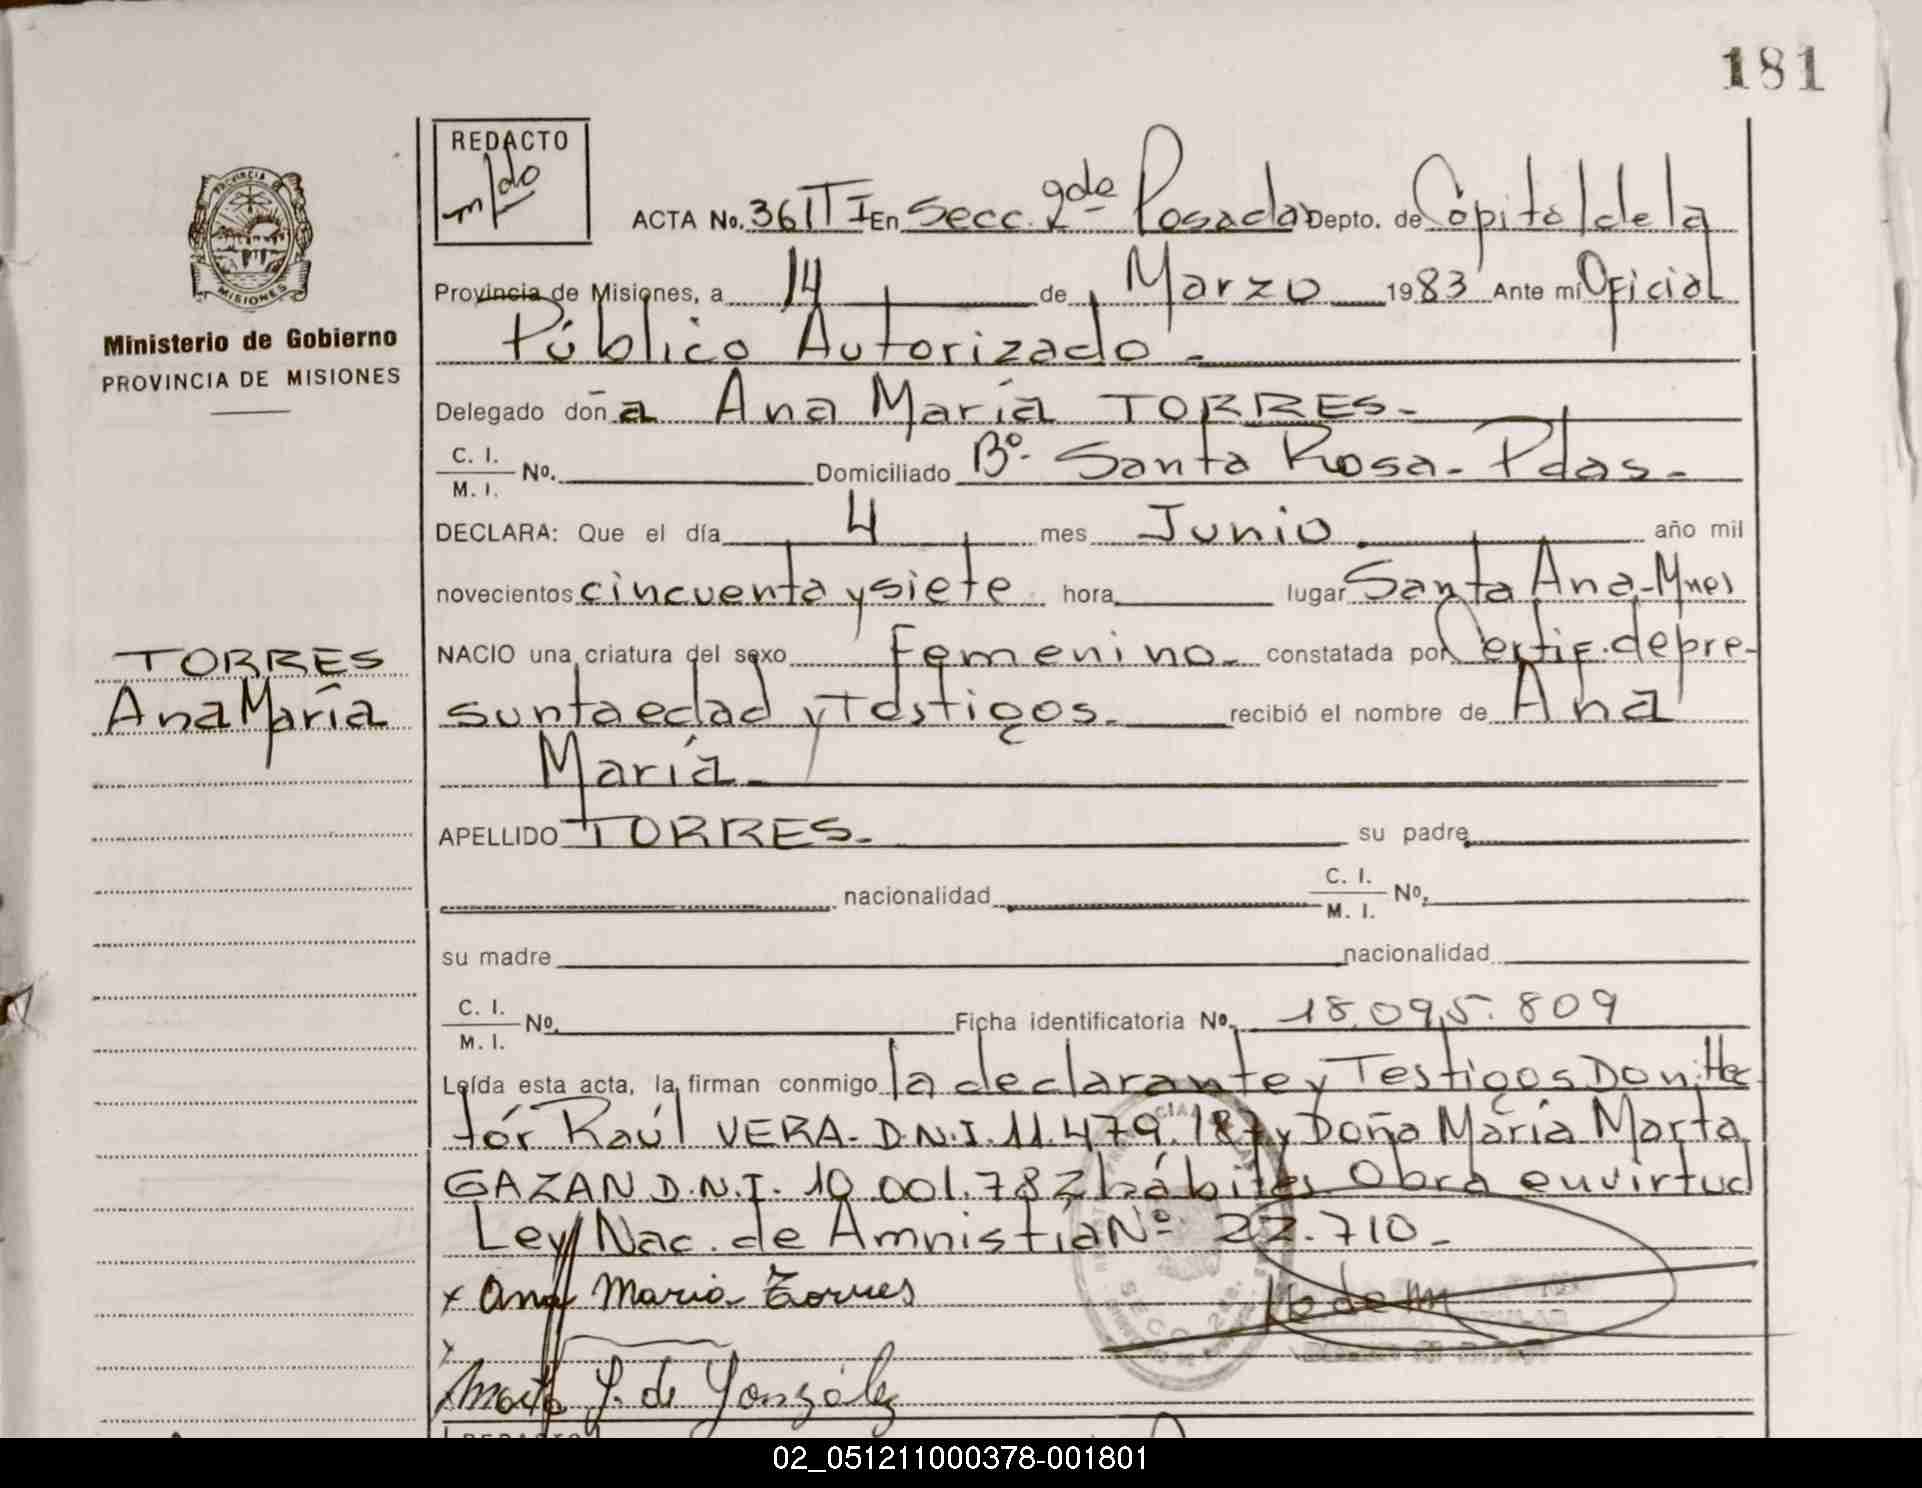 181
REDACTO
PROVINCIA DE
MISIONES
Ministerio de Gobierno
PROVINCIA DE MISIONES
ACTA No. 361 T I En Secc. 2da Posadas Depto. de Capital de la
Provincia de Misiones, a 14 de Marzo 1983 Ante mi Oficial
Público Autorizado.-
Delegado doña Ana María TORRES.-
C. I.
M. I. No. Domiciliado Bº. Santa Rosa - Pdas.-
DECLARA: Que el día 4 mes Junio año mil
novecientos cincuenta y siete hora lugar Santa Ana - Mnes
NACIO una criatura del sexo Femenino.- constatada por Certif. de pre-
sunta edad y Testigos.- recibió el nombre de Ana
María.-
TORRES
Ana María
APELLIDO TORRES.- su padre
nacionalidad C. I.
M. I. No.
su madre nacionalidad
C. I.
M. I. No. Ficha identificatoria No. 18.095.809
Leída esta acta, la firman conmigo la declarante y Testigos Don Héc
tór Raúl VERA - D.N.I. 11.479.187 y Doña María Marta
GAZAN D.N.I. 10.001.782 hábiles Obra en virtud
Ley Nac. de Amnistía Nº 22.710.-
x Ana Maria Torres
Marta G. de González
REDACTO
02_051211000378-001801